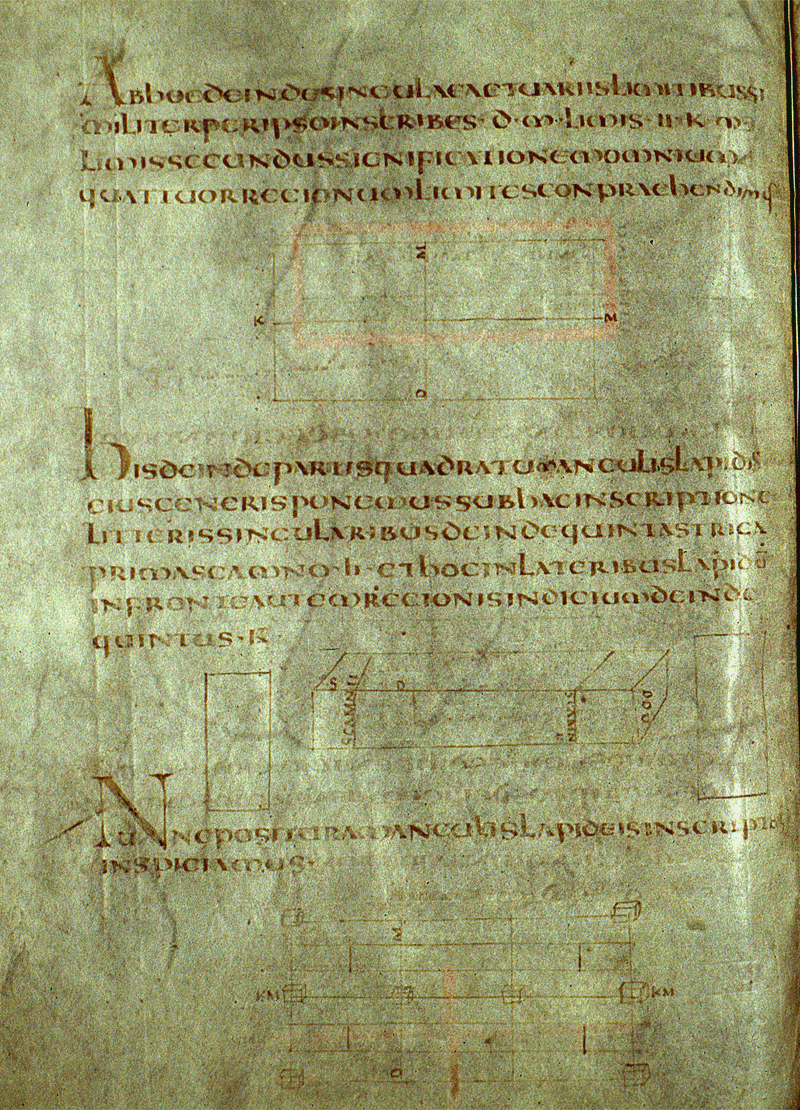 ABHOCDEINDESINGULAEACTUARIISLIMITIBUSSI
MILITERPERIPSOINSCRIBES·D·M·LIMIS·II·K·M
LIMISSECUNDUSSIGNIFICATIONEMOMNIUM
QUATTUORREGIONUMLIMITESCONPRAEHENDIMUS
M
K M
D
HISDEINDEPARTISQUADRATUMANGULISLAPIDES
EIUSGENERISPONEMUSSUBHACINSCRIPTIONE
LITTERISSINGULARIBUSDEINDEQUINTASTRIGA
PRIMASCAMNO·II·ETHOCINLATERIBUSLAPIDU
INFRONTEAUTEMREGIONISINDICIUMDEINDE
QUINTUS·K
S D
SCAMNII
NUNCPOSITURAMANGULISLAPIDEISINSCRIPTIO
INSPICIAMUS·
M
KM KM
D